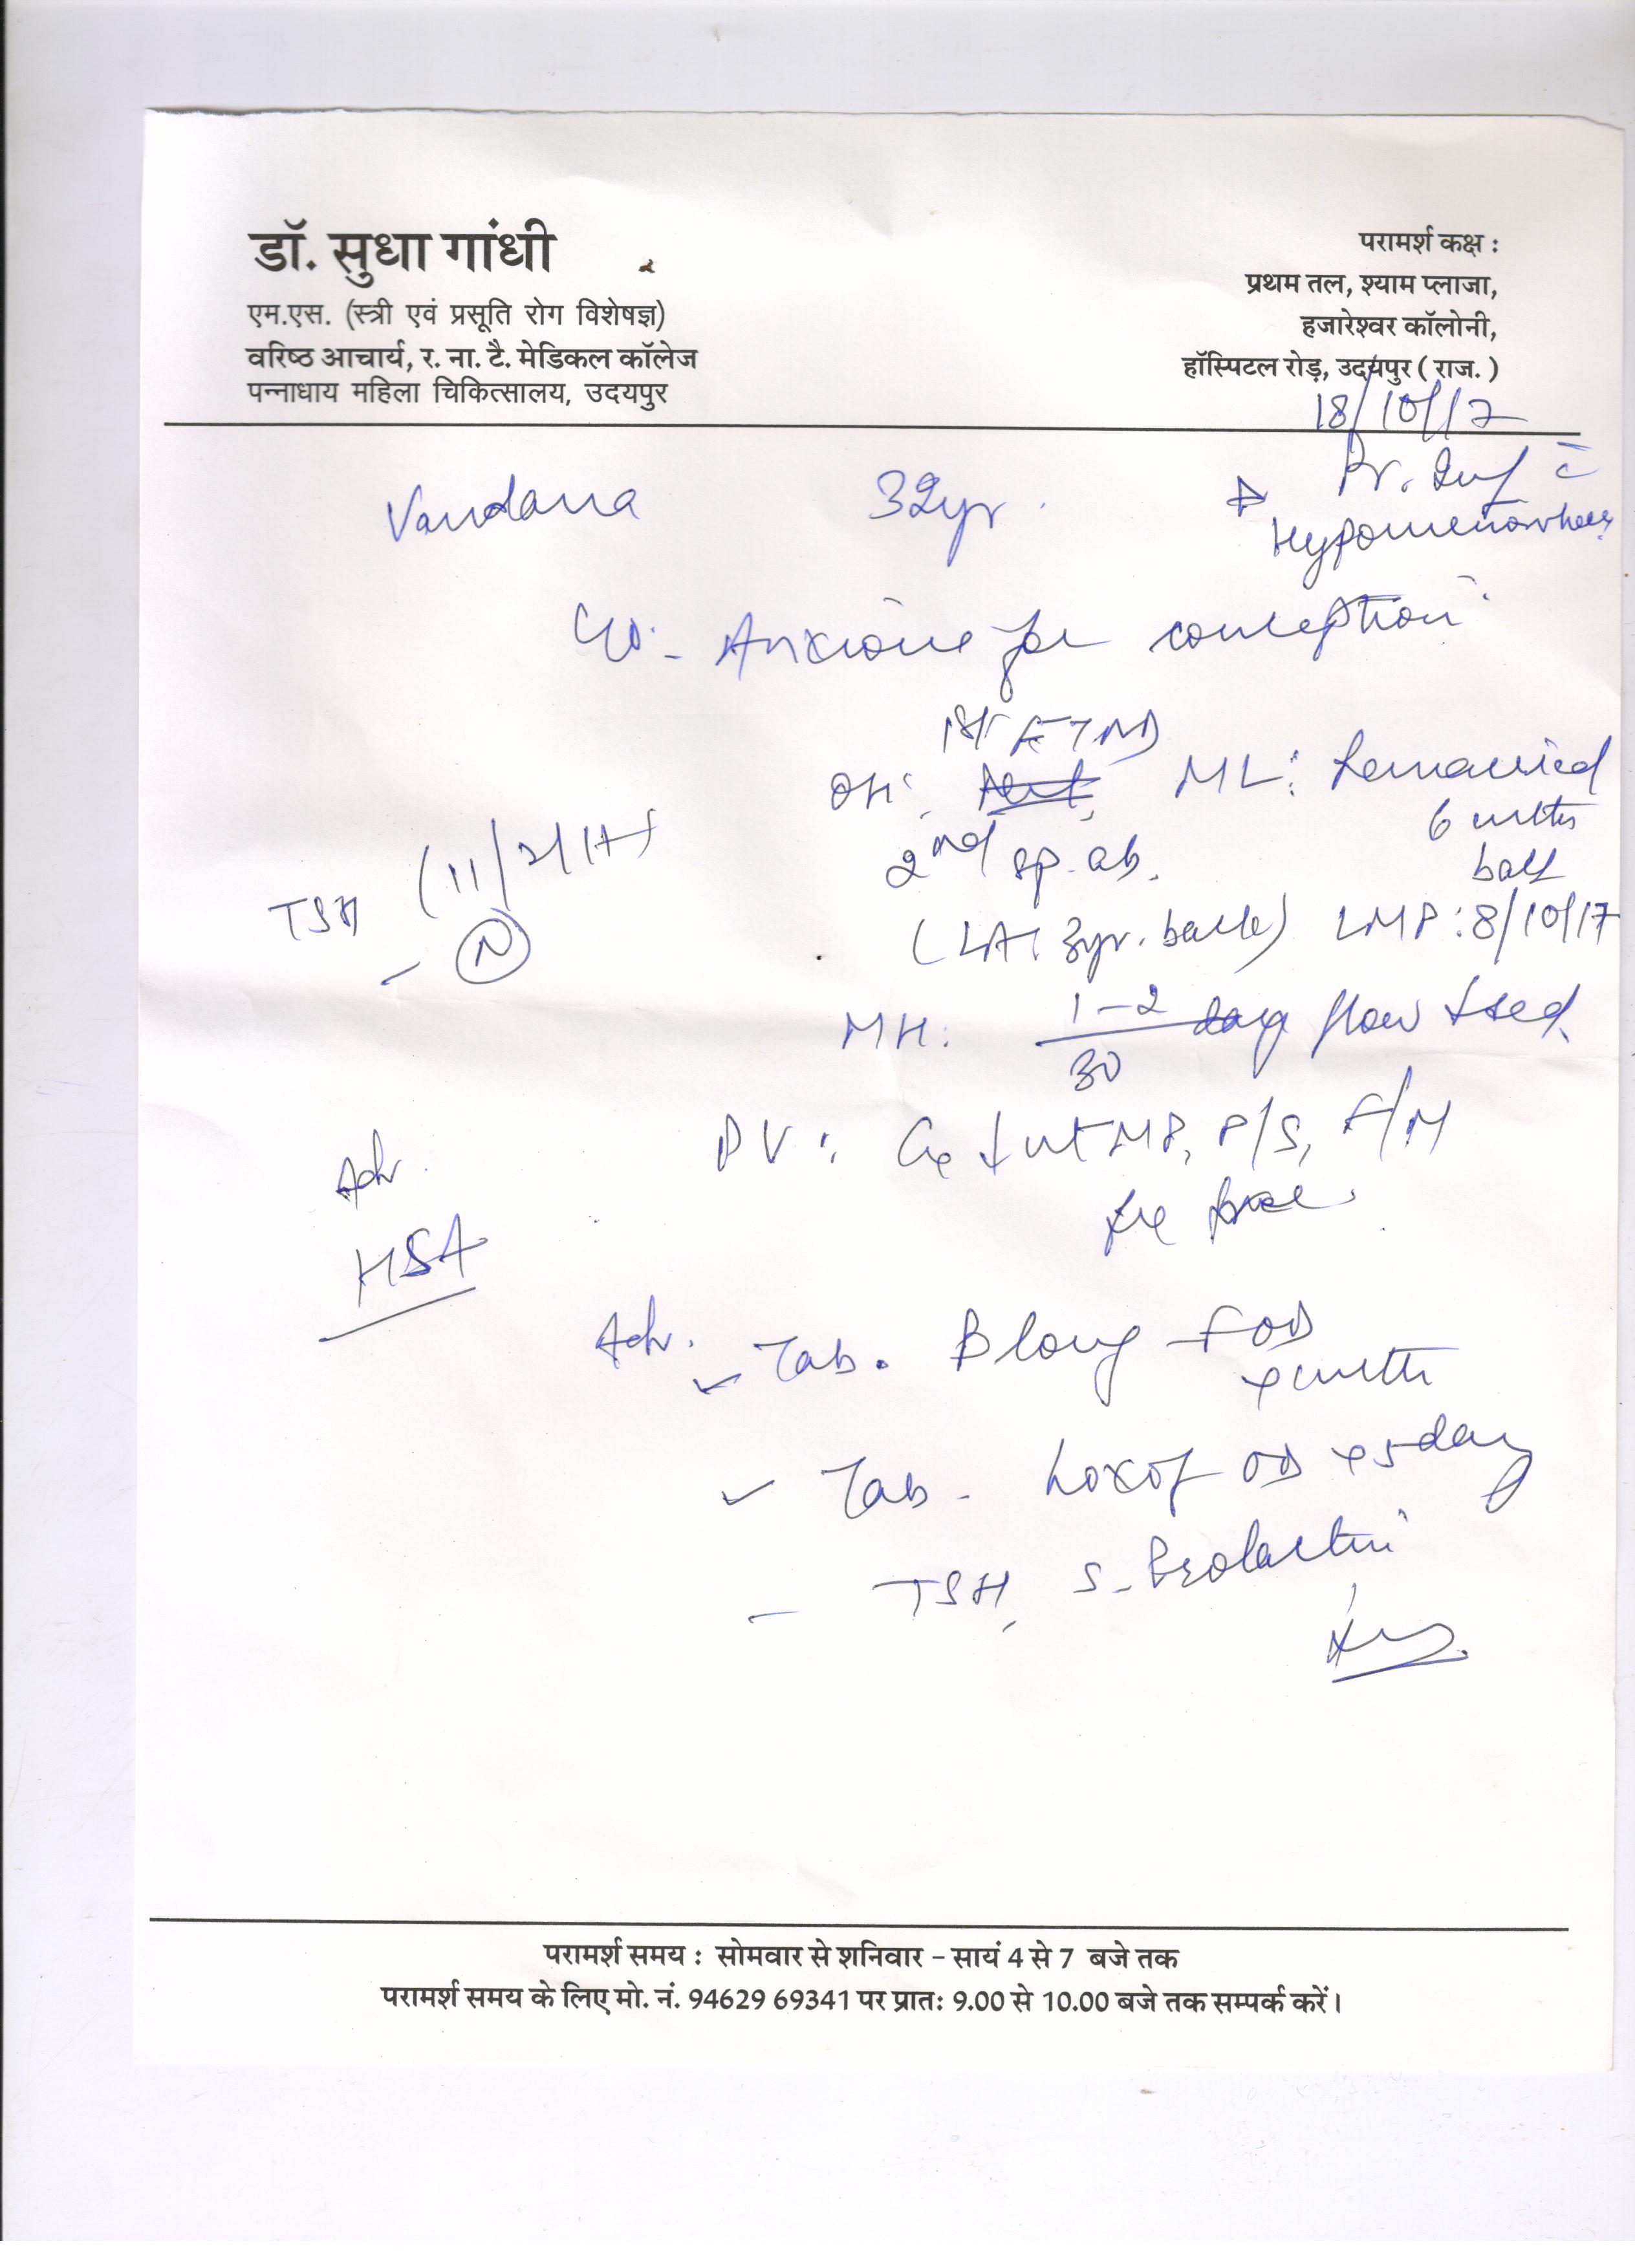 डॉ. सुधा गांधी
एम.एस. (स्त्री एवं प्रसूति रोग विशेषज्ञ)
वरिष्ठ आचार्य, र. ना. टै. मेडिकल कॉलेज
पन्नाधाय महिला चिकित्सालय, उदयपुर
परामर्श कक्ष :
प्रथम तल, श्याम प्लाजा,
हजारेश्वर कॉलोनी,
हॉस्पिटल रोड़, उदयपुर ( राज. )
18/10/17
Vandana 32yr.
Pr. Inf c̄
Hypomenorrhea
C/o - Anxious for conception
1st FTND
OH: ML: Remarried
6 mths
back
2nd sp. ab.
(LA: 3yr. back) LMP: 8/10/17
TSH (11/
- N
MH: 1-2/30 day flow
PV: Cx ↓ ut MP, P/S, F/M
fx free
Adv.
HSA
Adv. Tab. B long F OD
x mth
Tab. Loxof OD x 5 day
- TSH, S. Prolactin
परामर्श समय : सोमवार से शनिवार - सायं 4 से 7 बजे तक
परामर्श समय के लिए मो. नं. 94629 69341 पर प्रातः 9.00 से 10.00 बजे तक सम्पर्क करें।